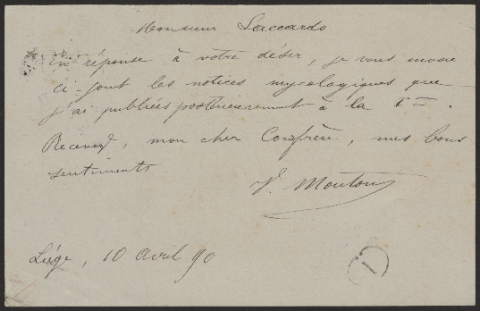 Monsieur Saccardo
En réponse à votre désir, je vous envoie
ci-joint les notices mycologiques que
j'ai publiées postérieurement à la 1re.
Recevez, mon cher Confrère, mes bons
sentiments
V. Mouton
Liége, 10 avril 90